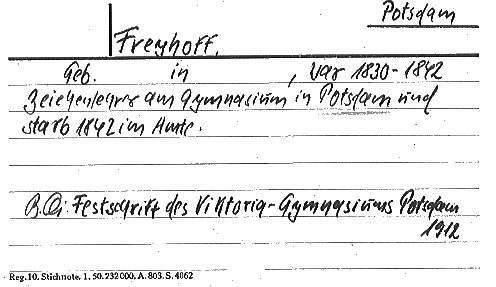 Potsdam
Freyhoff.
Geb. in , war 1830-1842
Zeichenlehrer am Gymnasium in Potsdam und
starb 1842 im Amte.
B.Qu: Festschrift des Viktoria-Gymnasiums Potsdam
1912
Reg.10. Stichnote. 1. 50.732000. A. 803. S. 4062